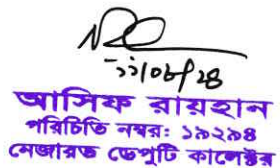 ১১/০৮/২৪
আসিফ রায়হান
পরিচিতি নম্বর: ১৯২৯৪
নেজারত ডেপুটি কালেক্টর